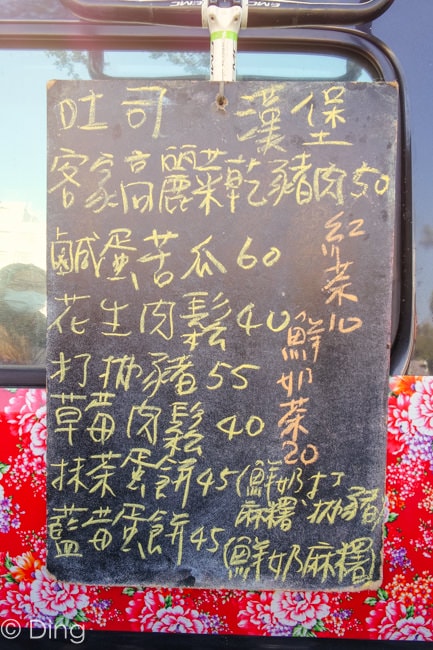 吐司 漢堡
客家高麗菜乾豬肉50
鹹蛋苦瓜60
花生肉鬆40
打拋豬55
草莓肉鬆40
抹茶蛋餅45(鮮奶打
麻糬 拋豬)
藍莓蛋餅45(鮮奶麻糬)
紅茶10
鮮奶茶20
© Ding